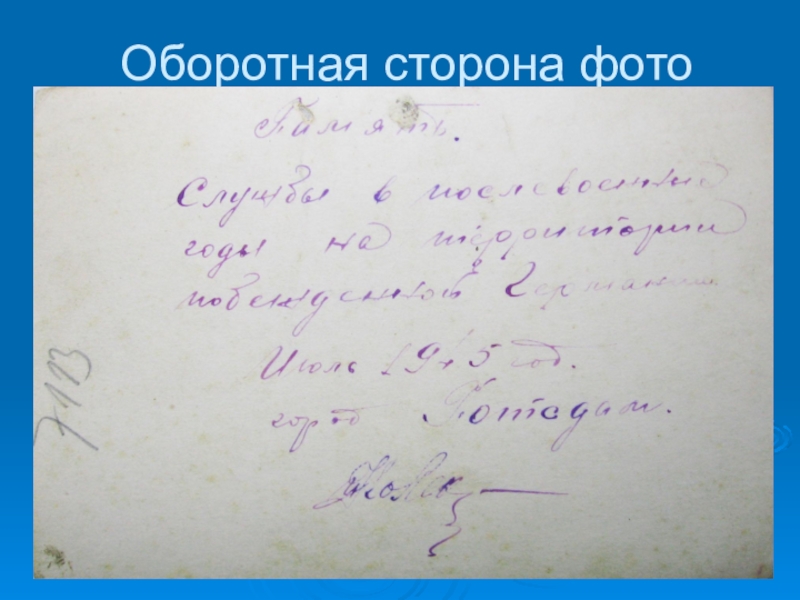 Оборотная сторона фото
Память.
Службы в послевоенные
годы на территории
побежденной Германии
Июль 1945 год.
город Потсдам.